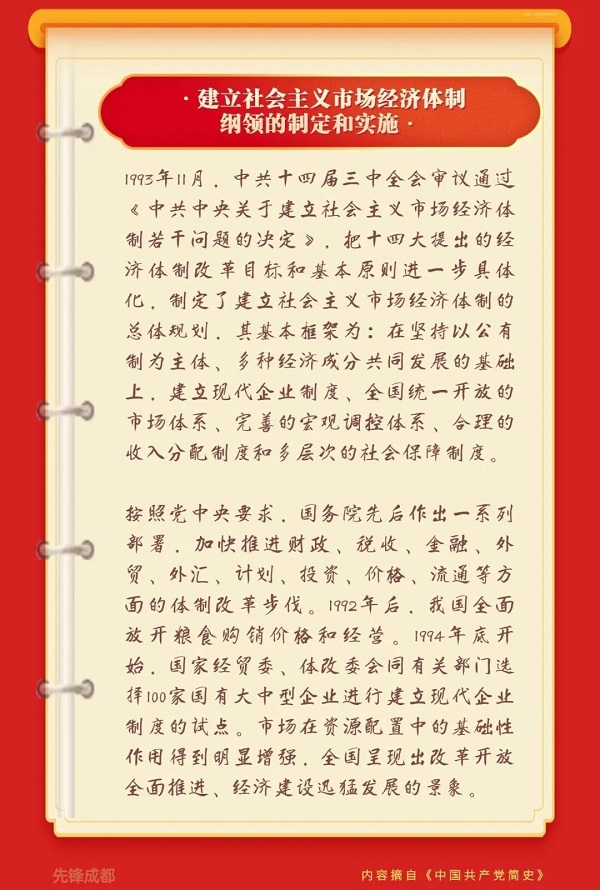 ·建立社会主义市场经济体制
纲领的制定和实施·
1993年11月，中共十四届三中全会审议通过
《中共中央关于建立社会主义市场经济体
制若干问题的决定》，把十四大提出的经
济体制改革目标和基本原则进一步具体
化，制定了建立社会主义市场经济体制的
总体规划，其基本框架为：在坚持以公有
制为主体、多种经济成分共同发展的基础
上，建立现代企业制度、全国统一开放的
市场体系、完善的宏观调控体系、合理的
收入分配制度和多层次的社会保障制度。
按照党中央要求，国务院先后作出一系列
部署，加快推进财政、税收、金融、外
贸、外汇、计划、投资、价格、流通等方
面的体制改革步伐。1992年后，我国全面
放开粮食购销价格和经营。1994年底开
始，国家经贸委、体改委会同有关部门选
择100家国有大中型企业进行建立现代企业
制度的试点。市场在资源配置中的基础性
作用得到明显增强，全国呈现出改革开放
全面推进、经济建设迅猛发展的景象。
先锋成都
内容摘自《中国共产党简史》